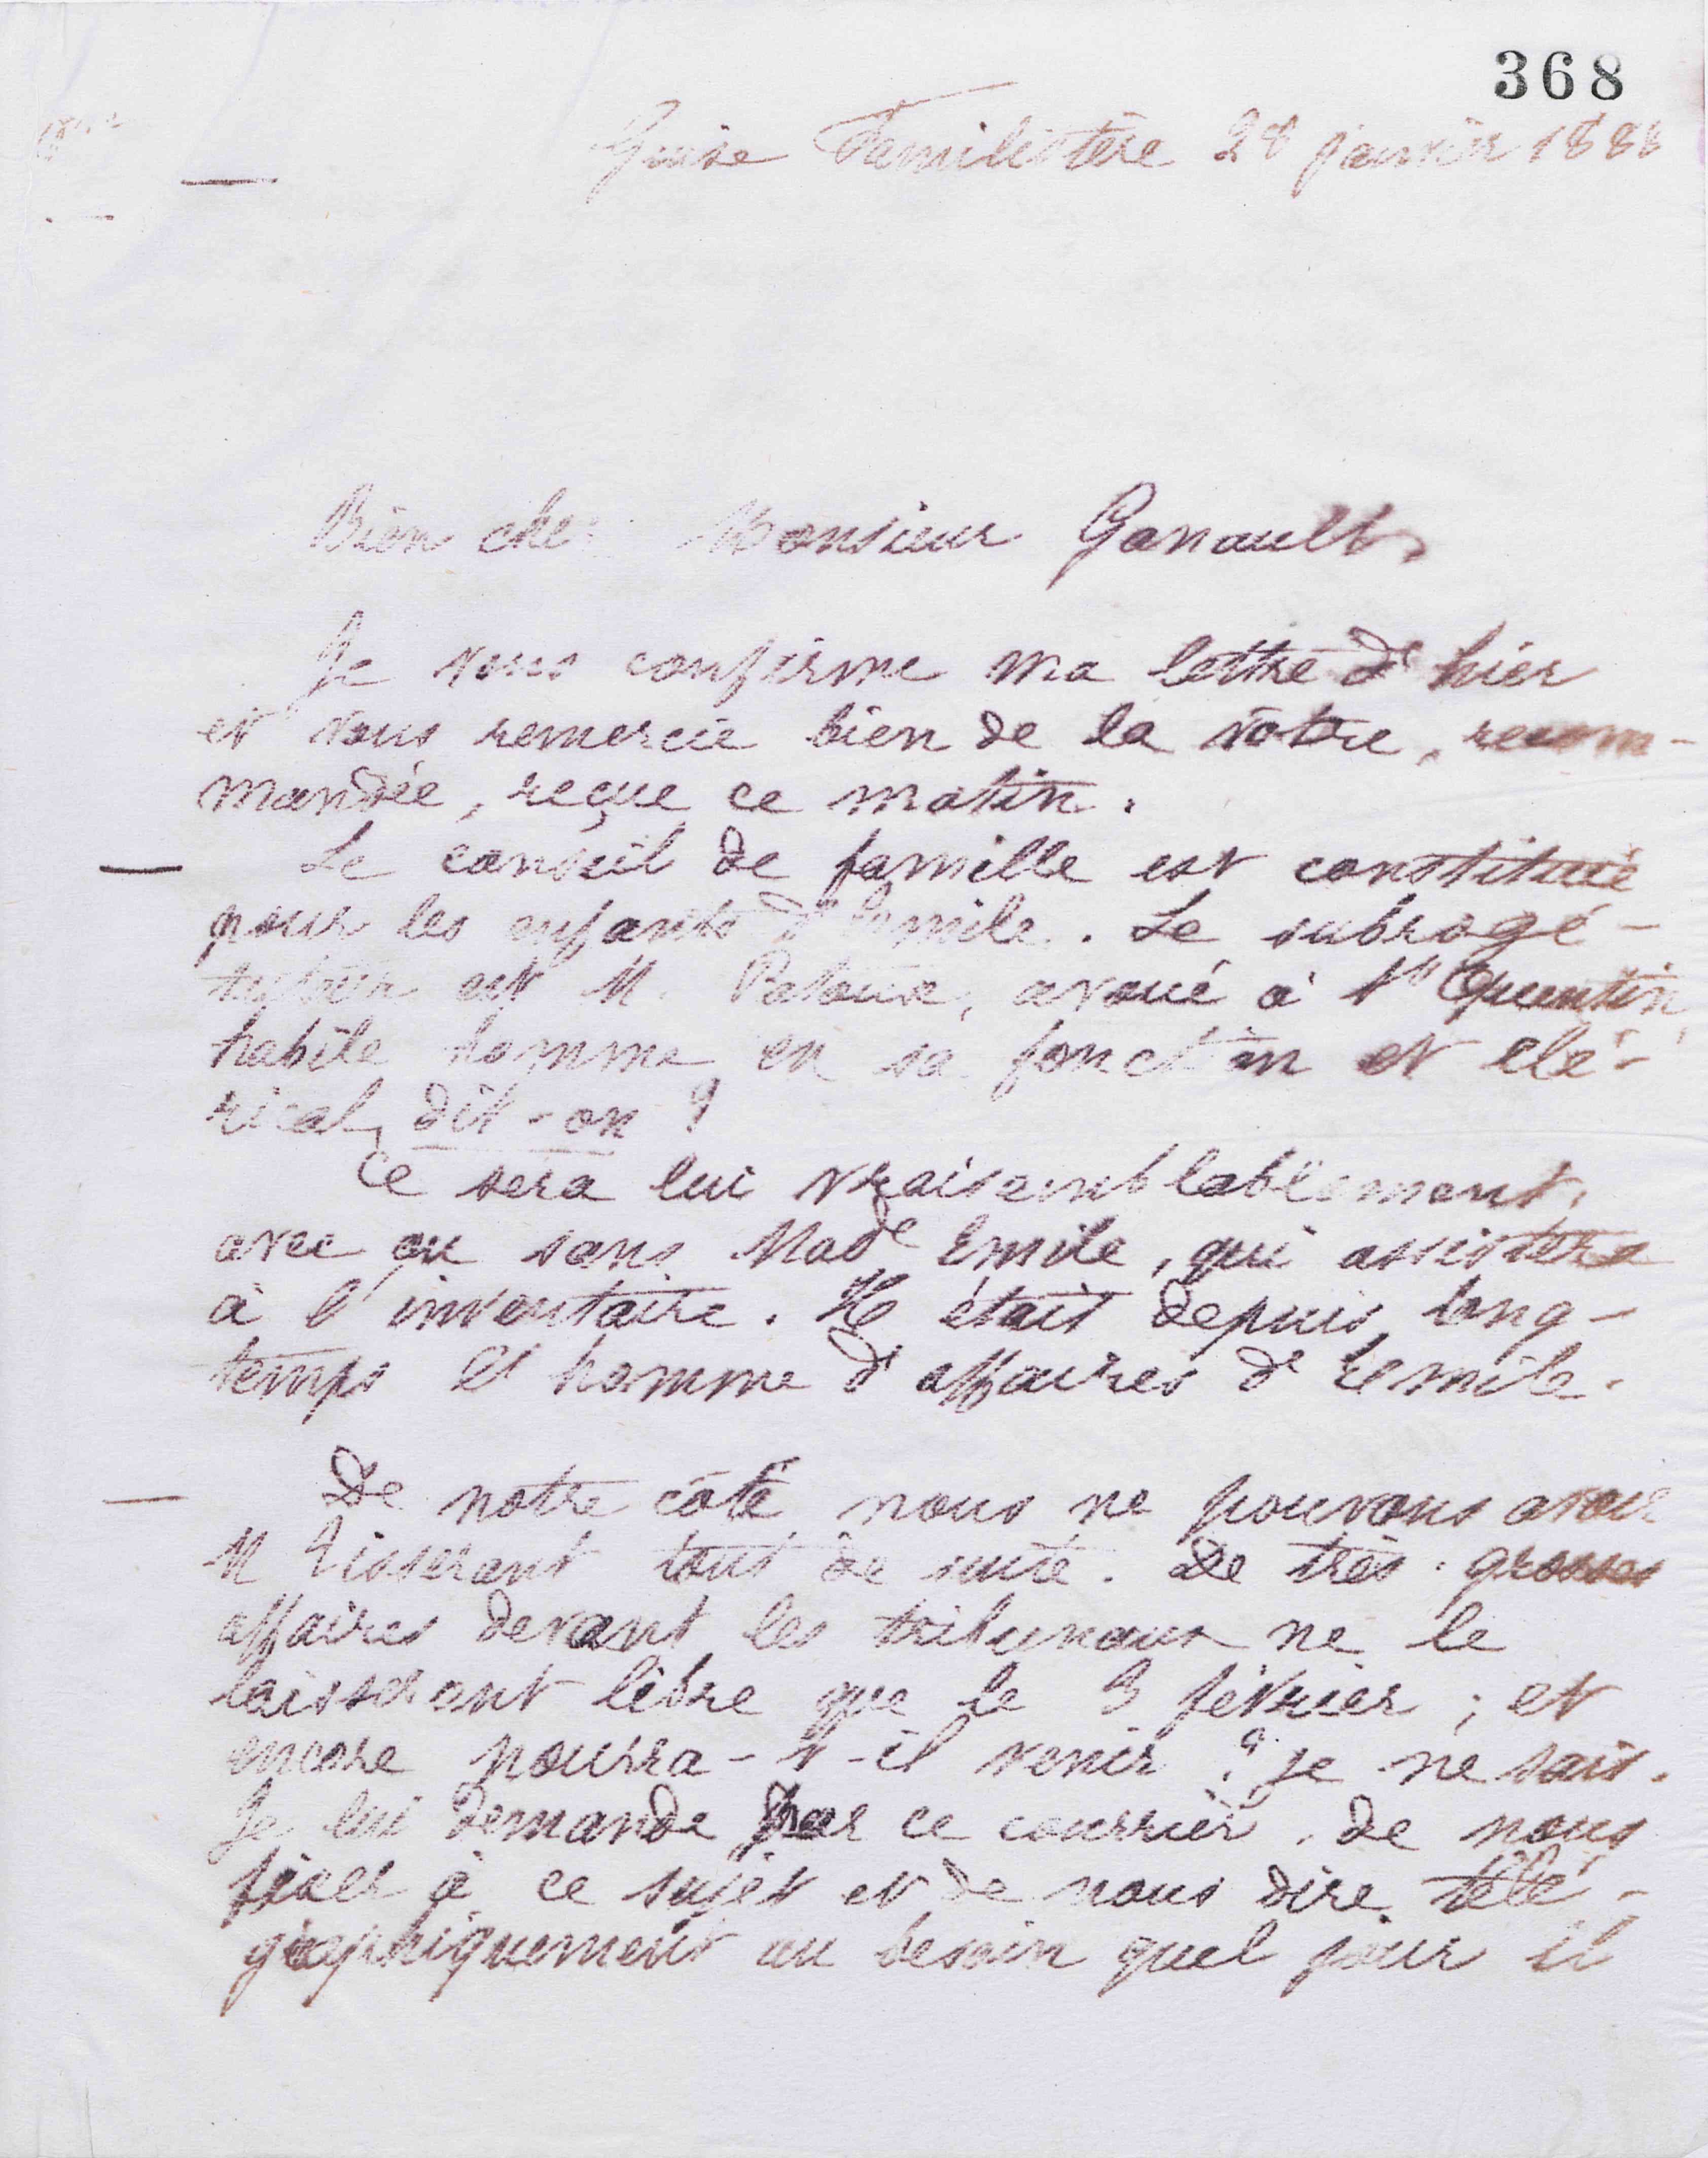 368
Guise Familistère 28 janvier 1888
Bien cher Monsieur Ganault,
Je vous confirme ma lettre d'hier
et vous remercie bien de la vôtre, recom-
mandée, reçue ce matin.
Le conseil de famille est constitué
pour les enfants d'Emile. Le subrogé-
tuteur est M. Patoux, avoué à St Quentin
habile homme en sa fonction et clé-
rical, dit-on ?
Ce sera lui vraisemblablement,
avec ou sans Made Emile, qui assistera
à l'inventaire. Il était depuis long-
temps l'homme d'affaires d'Emile.
De notre côté nous ne pouvons avoir
M Tisserant tout de suite. De très grosses
affaires devant les tribunaux ne le
laisseront libre que le 3 février ; et
encore pourra-t-il venir ? Je ne sais.
Je lui demande par ce courrier, de nous
fixer à ce sujet et de nous dire télé-
graphiquement au besoin quel jour il